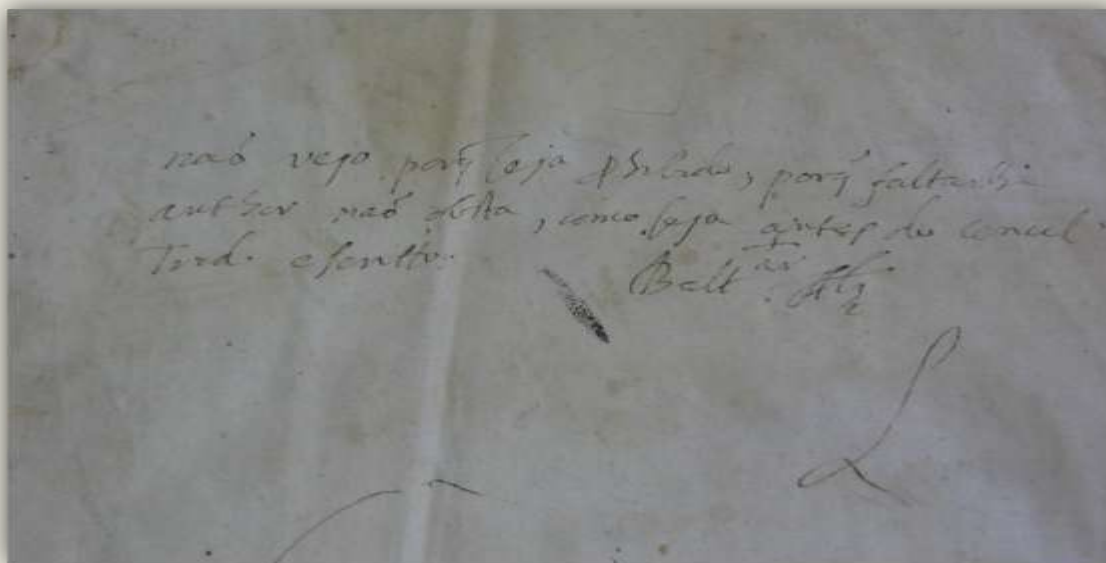 naõ vejo porq̃ seja phibido, porq̃ faltar lhe
author naõ obsta, como seja antes do Concil.
Trid. escritto.
Balt.ᵃʳ Alz
L